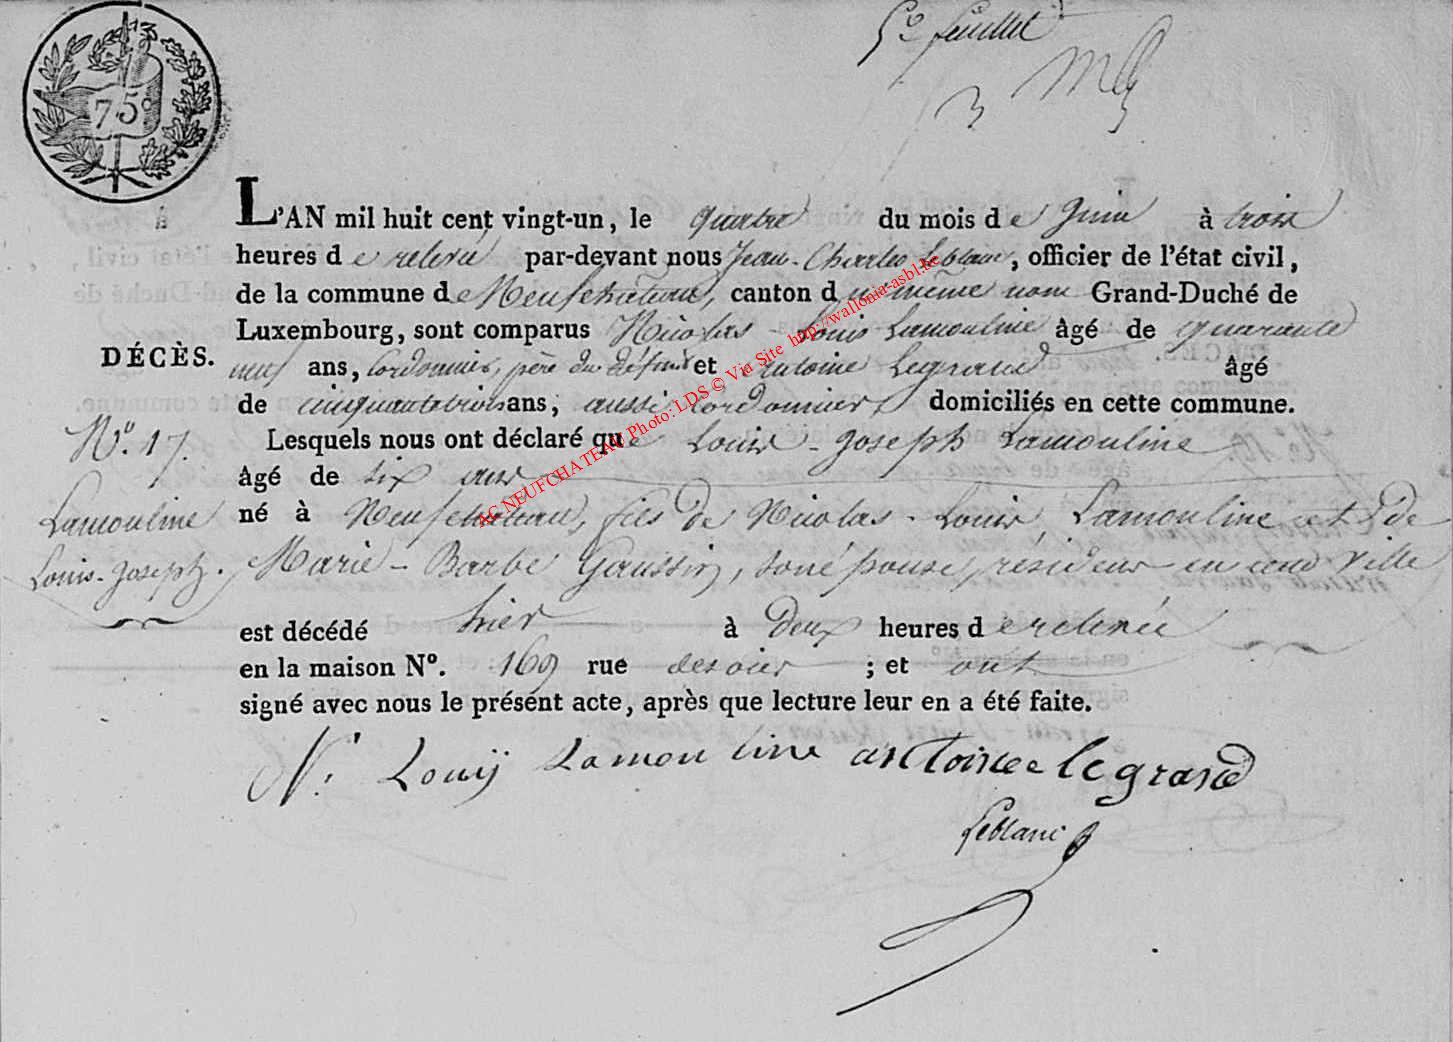 5e feuillet
75c
L'AN mil huit cent vingt-un, le quatre du mois de Juin à trois
heures de relevée par-devant nous Jean-Charles Leblanc, officier de l'état civil,
de la commune de Neufchateau, canton du même nom Grand-Duché de
Luxembourg, sont comparus Nicolas-Louis Lamouline âgé de quarante
DÉCÈS.
neuf ans, cordonnier, père du défunt et Antoine Legrand âgé
de cinquante trois ans, aussi cordonnier, domiciliés en cette commune.
No. 17.
Lesquels nous ont déclaré que Louis-Joseph Lamouline
âgé de six ans
Lamouline
Louis-Joseph.
né à Neufchateau, fils de Nicolas-Louis Lamouline et de
Marie-Barbe Gaussin, son épouse, résideur en cette ville
est décédé hier à deux heures de relevée
en la maison No. 169 rue ; et ont
signé avec nous le présent acte, après que lecture leur en a été faite.
N. Louij Lamouline antoine legrand
Leblanc
AC NEUFCHATEAU Photo: LDS © Via Site http://wallonia-asbl.be